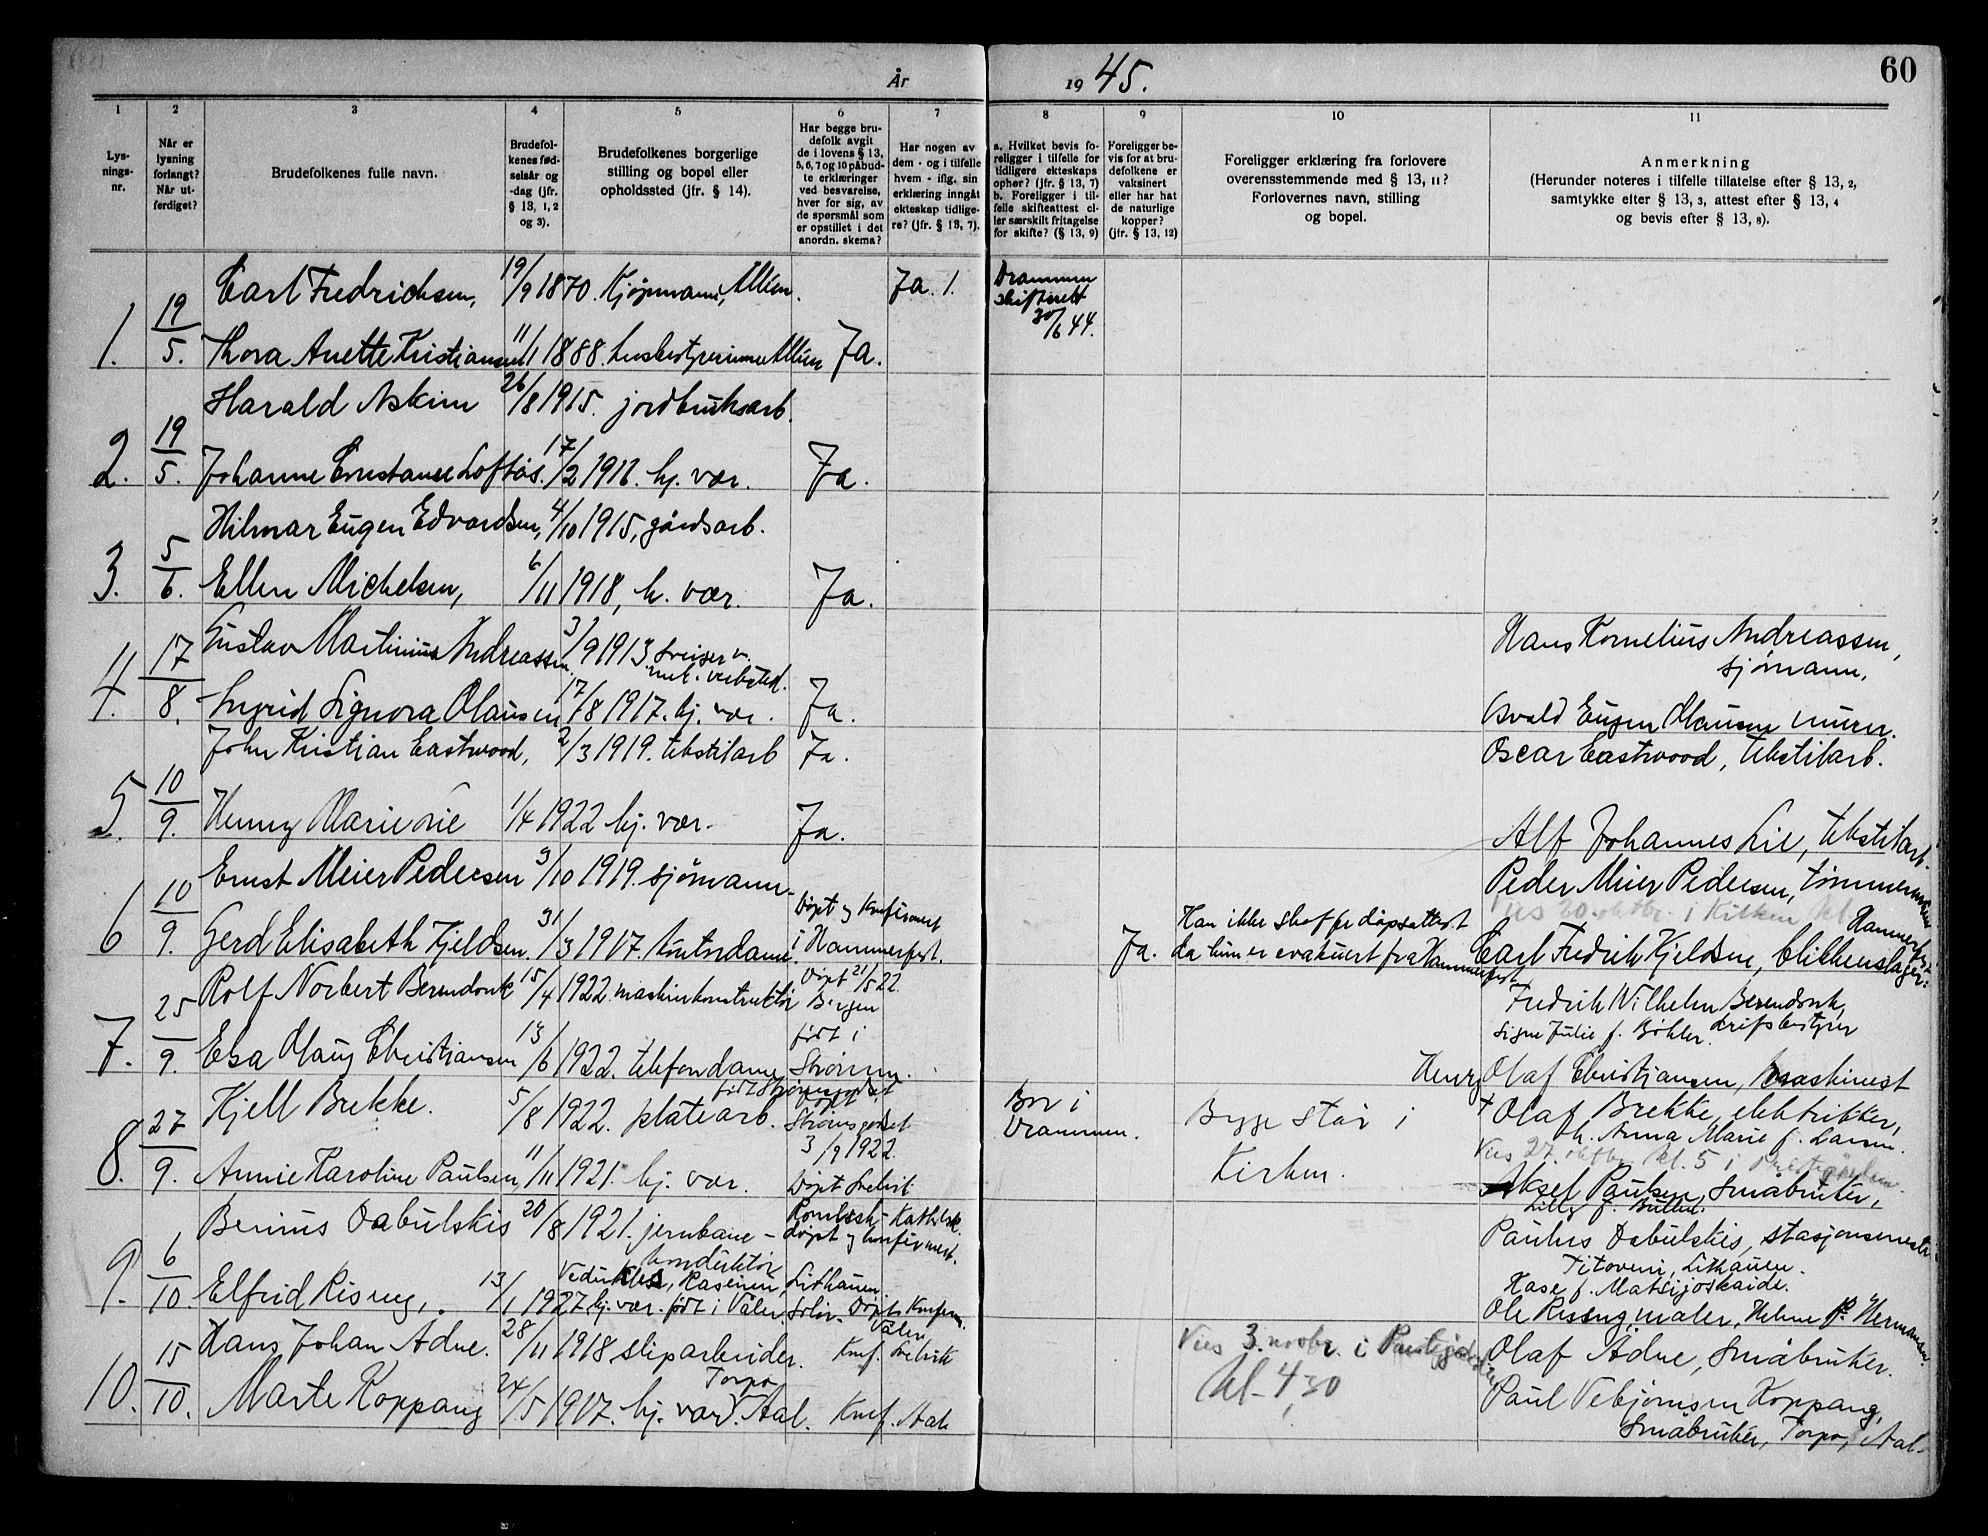 År 1945.
60
1 2 3 4 5 6 7 8 9 10 11
Lys-nings-nr.
Når er lysning forlangt? Når ut-ferdiget?
Brudefolkenes fulle navn.
Brudefol-kenes fød-selsår og -dag (jfr. § 13, 1, 2 og 3).
Brudefolkenes borgerlige stilling og bopel eller opholdssted (jfr. § 14).
Har begge bru-defolk avgit de i lovens § 13, 5, 6, 7 og 10 påbud-te erklæringer ved besvarelse, hver for sig, av de spørsmål som er opstillet i det anordn. skema?
Har nogen av dem - og i tilfelle hvem - iflg. sin erklæring inngått ekteskap tidlige-re? (jfr. § 13, 7).
a. Hvilket bevis fo-religger i tilfelle for tidligere ekteskaps ophør? (jfr. § 13, 7) b. Foreligger i til-felle skifteattest el-ler særskilt fritagelse for skifte? (§ 13, 9)
Foreligger be-vis for at bru-defolkene er vaksinert eller har hat de naturlige kopper? (jfr. § 13, 12)
Foreligger erklæring fra forlovere overensstemmende med § 13, 11? Forlovernes navn, stilling og bopel.
Anmerkning (Herunder noteres i tilfelle tillatelse efter § 13, 2, samtykke efter § 13, 3, attest efter § 13, 4 og bevis efter § 13, 8).
1. 19/5.
Carl Fredrichsen, 19/9 1870. Kjøpmann, Ja. 1. Drammen skifterett 30/6 44.
Thora Anette Kristiansen 11/1 1888. husbestyrerinne Ja.
2. 19/5.
Harald Askim 26/8 1915. jordbruksarb.
Johanne Constanse Loftås. 17/2 1911. hj. vær. Ja.
3. 5/6.
Hilmar Eugen Edvardsen, 4/10 1915, gårdsarb.
Ellen Michelsen, 6/11 1918, h. vær. Ja.
4. 17/8.
Gustav Martinius Andreassen. 3/9 1913. sveiser v. mek. verksted. Hans Kornelius Andreassen, sjømann.
Ingrid Signora Olausen 17/8 1917. hj. vær. Ja. Osvald Eugen Olausen murer.
5. 10/9.
John Kristian Eastwood, 2/3 1919. tekstilarb Ja. Oscar Eastwood, tekstilarb.
Henny Marie Lie 1/4 1922 hj. vær. Ja. Alf Johannes Lie, tekstilarb.
6 10/9.
Ernst Meier Pedersen 9/10 1919. sjømann. Peder Meier Pedersen, tømmermann
Vies 20. oktbr. i Kirken kl.
Gerd Elisabeth Kjeldsen. 31/3 1917. kontordame. Døpt og konfirmert i Hammerfest. Ja. Han ikke skaffe døpsattest da hun er evakuert fra Hammerfest Carl Fredrik Kjeldsen, blikkenslager. Hammerfest
7. 25/9.
Rolf Norbert Berendonk 15/4 1922. maskinkonstruktør Døpt 21/5 22. Bergen Fredrik Wilhelm Berendonk, driftsbestyrer
Signe Julie f. Bøhler.
Elsa Olaug Christiansen 13/6 1922. telefondame født i Strømm. Henry Olaf Christiansen, maskinist
8. 27/9.
Kjell Brekke. 5/8 1922. platearb. født Strømsgodset døpt Strømsgodset 3/9 1922. Bor i Drammen. Begge står i Kirken. † Olaf Brekke, elektrikker,
h. Anna Marie f. Larsen.
Vies 27. oktbr. kl. 5 i Prestegården.
Annie Karoline Paulsen, 11/11 1921. hj. vær. Døpt Svelvik Aksel Paulsen, Småbruker,
9. 6/10.
Benius Dabulskis 20/8 1921. jernbane-konduktør Romersk-Katholsk. døpt og konfirmert. Paulus Dabulskis, stasjonsmester
Lithauen. Titoveni, Lithauen.
Elfrid Risnug,. 13/1 1927 hj. vær. født i Våler Solør. Døpt, Konfirm. Våler Ole Risnug, maler, Helene f. Hermansen
10. 15/10.
Hans Johan Adne. 28/11 1918 sliparbeider. Konf. Svelvik Vies 3. novbr. i Prestegården kl. 4,30 Olaf Ådne, Småbruker.
Marte Koppang 24/5 1917. hj. vær. Torpo Aal. Konf. Aal Paul Vebjørnsen Koppang, Småbruker, Torpo, Aal.